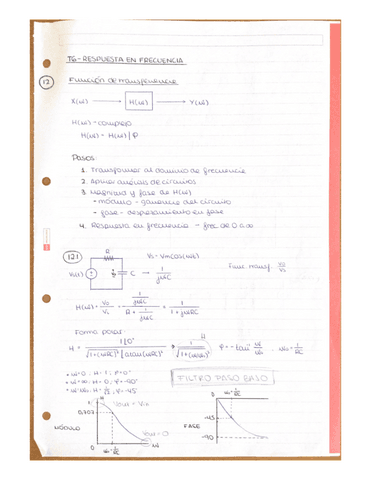 T6 - RESPUESTA EN FRECUENCIA
12
Función de transferencia
X(ω) → H(ω) → Y(ω)
H(ω) = complejo
H(ω) = H(ω) | φ
Pasos:
1. Transformar al dominio de frecuencia
2. Aplicar análisis de circuitos
3. Magnitud y fase de H(ω)
- módulo - ganancia del circuito
- fase - desplazamiento en fase
4. Respuesta en frecuencia - frec de 0 a ∞
12.1
R
Vs = Vm cos(ωt)
Func. transf. Vo/Vs
C → 1/jωC
H(ω) = Vo/Vs = (1/jωC) / (R + 1/jωC) = 1 / (1 + jωRC)
Forma polar:
φ = -tan⁻¹ ω/ωo
ωo = 1/RC
• ω=0 ; H=1 ; φ=0°
• ω=∞ ; H=0 ; φ=-90°
FILTRO PASO BAJO
H
1
0.707
Vout = Vin
Vout = 0
MÓDULO
ωo = 1/RC
FASE
-45
-90
ωo = 1/RC